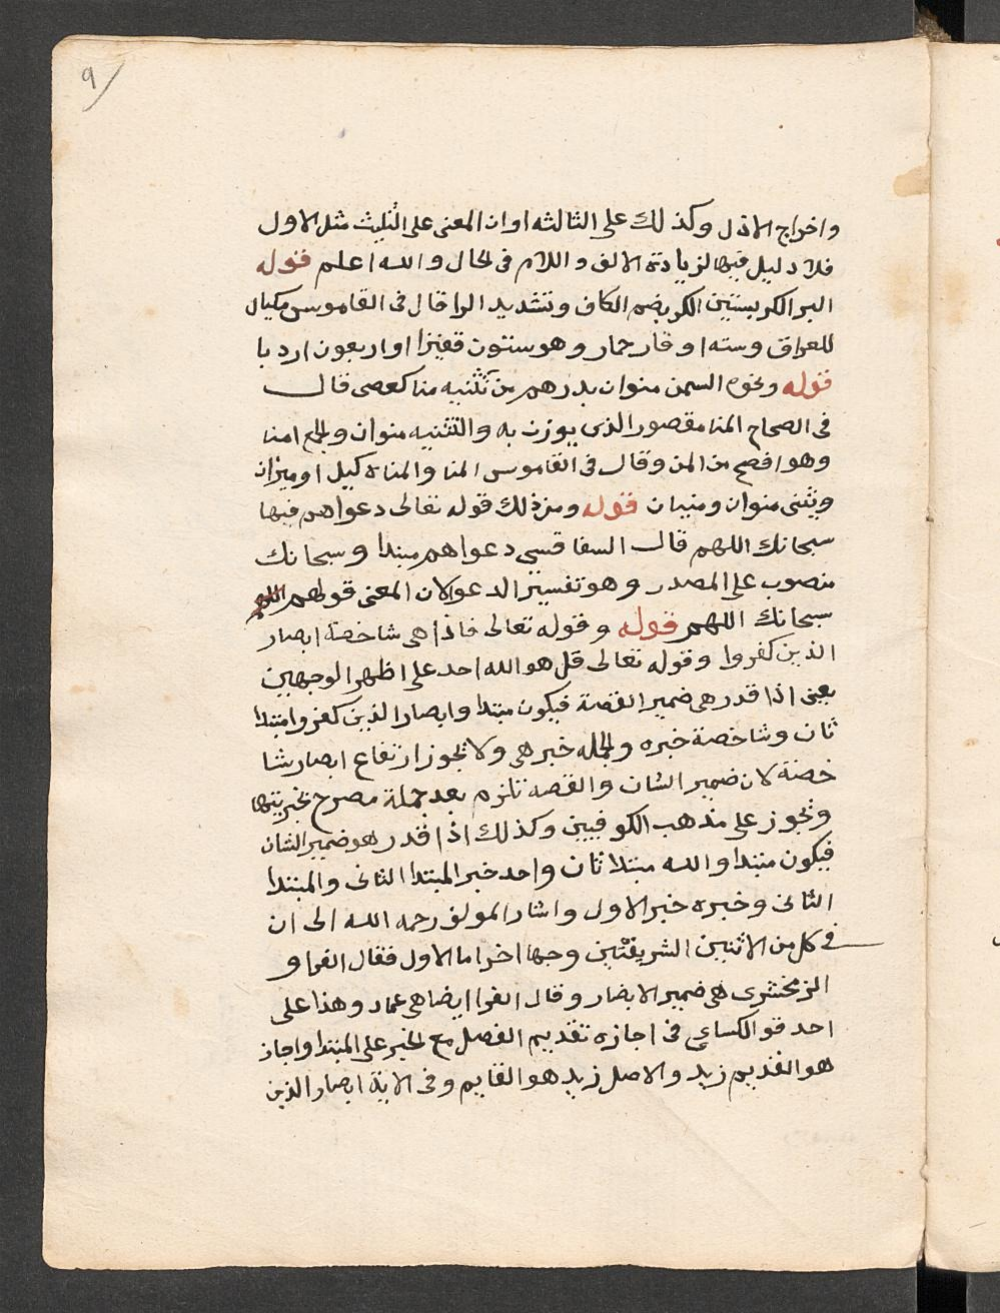 ٩
واخراج الاذل وكذلك على الثالثه اوان المعنى على الثليث مثل الاول
فلا دليل فيها لزيادة الالف واللام فى الحال والله اعلم قوله
البر الكر بستين الكر بضم الكاف وتشديد الرا قال فى القاموس مكيال
للعراق وسته اوقار حمار وهو ستون قفيزا او اربعون اردبا
قوله ونحوه السمن منوان بدرهم من تثنيه منا كعصى قال
فى الصحاح المنا مقصور الذى يوزن به والتثنيه منوان والجمع امنا
وهو افصح من المن وقال فى القاموس المنا والمناه كيل اوميزان
ويثنى منوان ومنيان قوله ومن ذلك قوله تعالى دعواهم فيها
سبحانك اللهم قال السفاقسى دعواهم مبتدا وسبحانك
منصوب على المصدر وهو تفسير الدعوالان المعنى قولهم اللهم
سبحانك اللهم قوله وقوله تعالى فاذا هى شاخصة ابصار
الذين كفروا وقوله تعالى قل هو الله احد على اظهر الوجهين
يعنى اذا قدر هى ضمير القصة فيكون مبتدا وابصار الذين كفروا مبتدا
ثان وشاخصة خبره والجمله خبر هى ولا يجوز ارتفاع ابصار بشا
خصة لان ضمير الشان والقصه تلزم بعد جملة مصرح بجزييها
ويجوز على مذهب الكوفيين وكذلك اذا قدر هو ضمير الشان
فيكون مبتدا والله مبتدا ثان واحد خبر المبتدا الثانى والمبتدا
الثانى وخبره خبر الاول واشار المولف رحمه الله الى ان
فى كل من الاثنين الشريفتين وجها اخر اما الاول فقال الفرا و
الزمخشرى هى ضمير الابصار وقال الفرا ايضا هى عماد وهذا على
احد قو الكساى فى اجازه تقديم الفصل مع الخبر على المبتدا واجاز
هو القديم زيد والاصل زيد هو القايم وفى الاية ابصار الذين